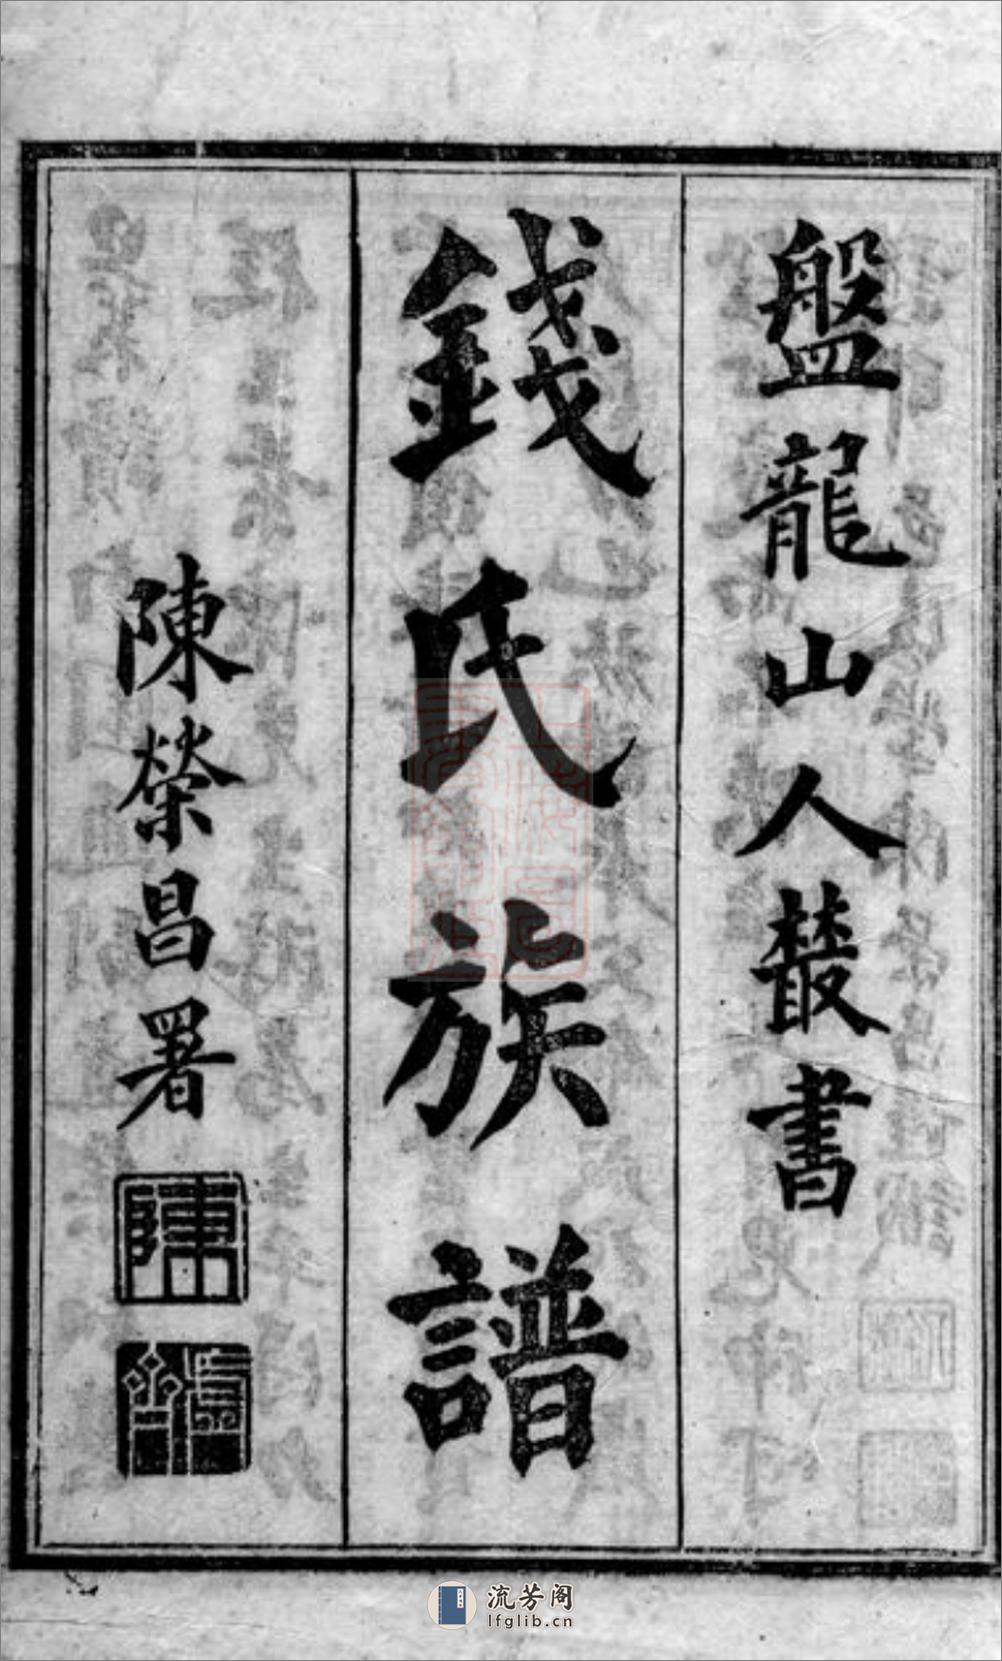 盤龍山人叢書
錢氏族譜
陳榮昌署
陳
流芳阁
lfglib.cn